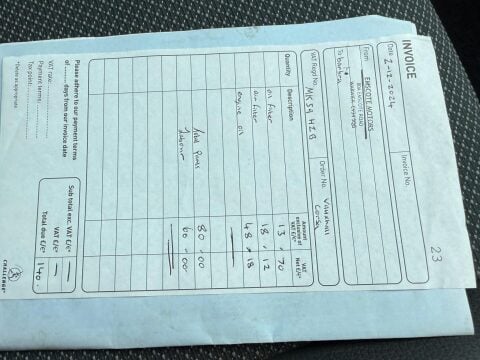 INVOICE
Invoice No.
23
Date 2-12-2024
From EMSCOTE MOTORS
To barbara
VAT Regd No. MK59 HZB
Order No. Vauxhall Corsa
Quantity Description Amount exclusive of VAT £/€* VAT Net £/€*
oil filter 13 . 70
air filter 18 . 12
engine oil 48 . 18
Total Parts 80 . 00
Labour 60 . 00
Please adhere to our payment terms
of ........ days from our invoice date
VAT rate:
Payment terms:
Tax point:
*Delete as appropriate
Sub total exc. VAT £/€*
VAT £/€*
Total due £/€* 140.
CHALLENGE